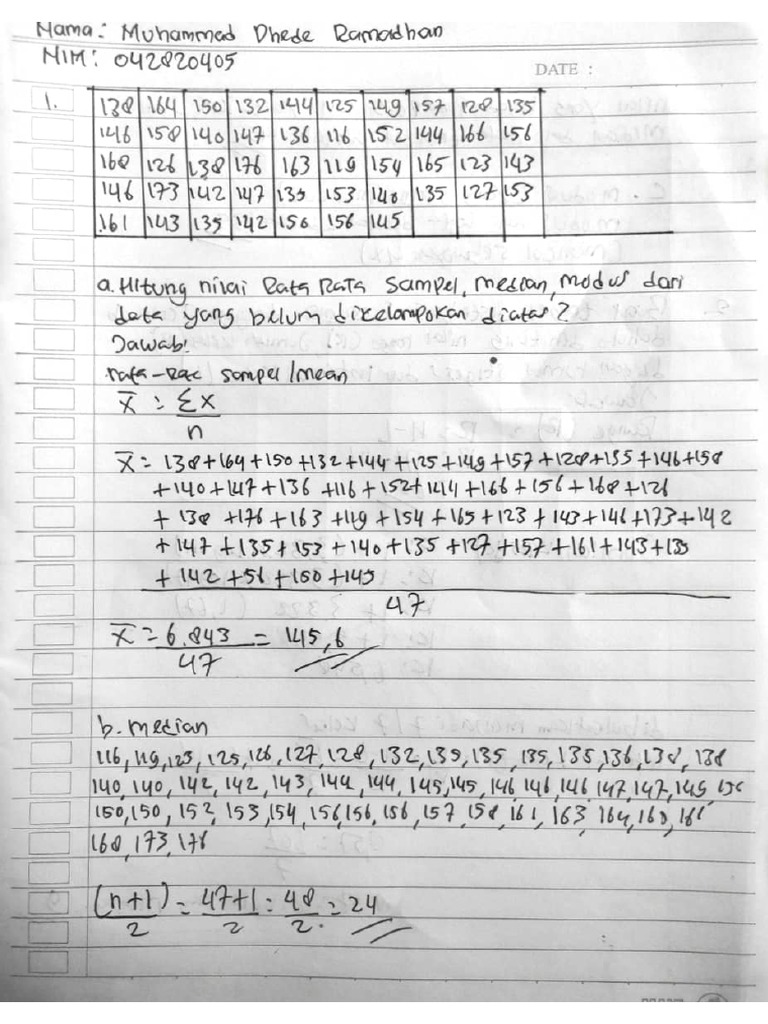 Nama: Muhammad Dhede Ramadhan
NIM: 042820405
DATE :
1. 138 164 150 132 144 125 149 157 128 135
146 158 140 147 136 116 152 144 166 156
168 126 138 176 163 119 154 165 123 143
146 173 142 147 135 153 140 135 127 153
161 143 135 142 150 156 145
a. Hitung nilai Rata Rata Sampel, median, modus dari
data yang belum dikelompokan diatas?
Jawab.
rata-rat sampel/mean
x̄ = Σx
n
x̄ = 138+164+150+132+144+125+149+157+128+135+146+158
+140+147+136+116+152+144+166+156+168+126
+138+176+163+119+154+165+123+143+146+173+142
+147+135+153+140+135+127+157+161+143+135
+142+56+150+145
47
x̄ = 6.843 = 145,6
47
b. median
116,119,123,125,126,127,128,132,135,135,135,135,136,138,138
140,140,142,142,143,144,144,145,145,146,146,146,147,147,149
150,150,152,153,154,156,156,156,157,158,161,163,164,160
168,173,176
(n+1) = 47+1 = 48 = 24
2 2 2.